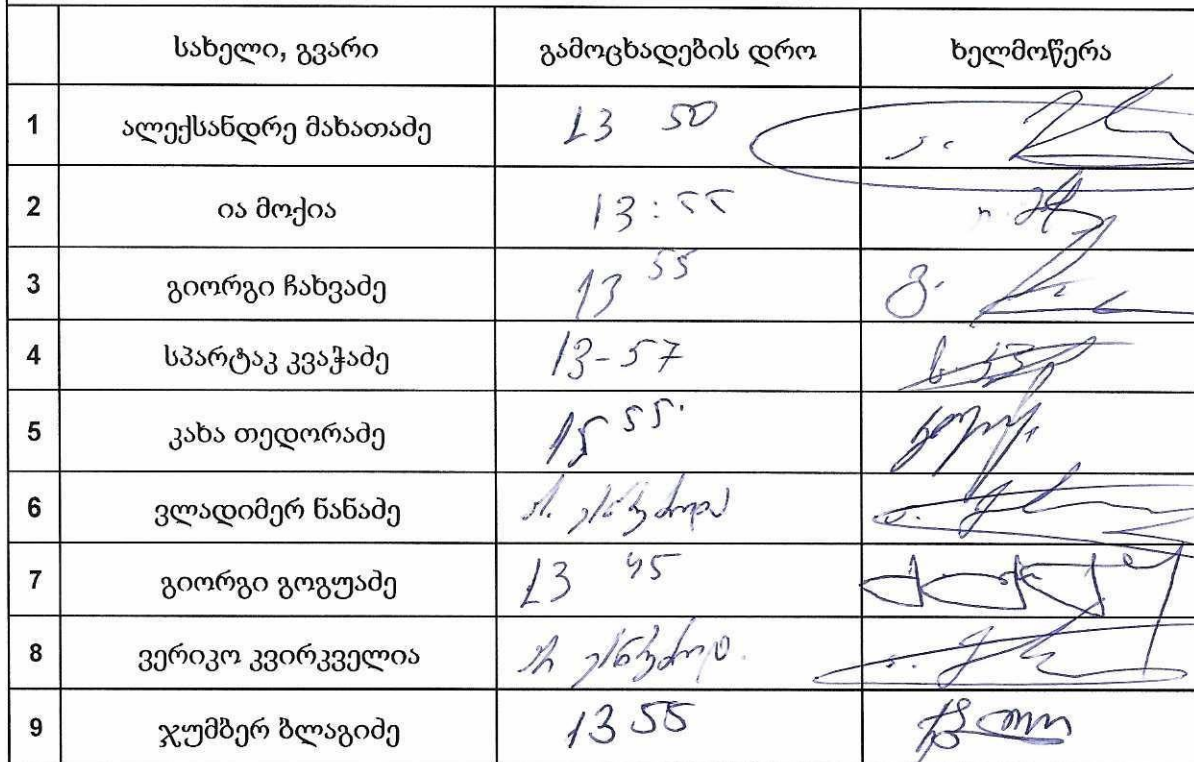 სახელი, გვარი გამოცხადების დრო ხელმოწერა
1 ალექსანდრე მახათაძე 13 50
2 ია მოქია 13:55
3 გიორგი ჩახვაძე 13 55
4 სპარტაკ კვაჭაძე 13-57
5 კახა თედორაძე 15 55.
6 ვლადიმერ ნანაძე
7 გიორგი გოგუაძე 13 45
8 ვერიკო კვირკველია
9 ჯუმბერ ბლაგიძე 13 55